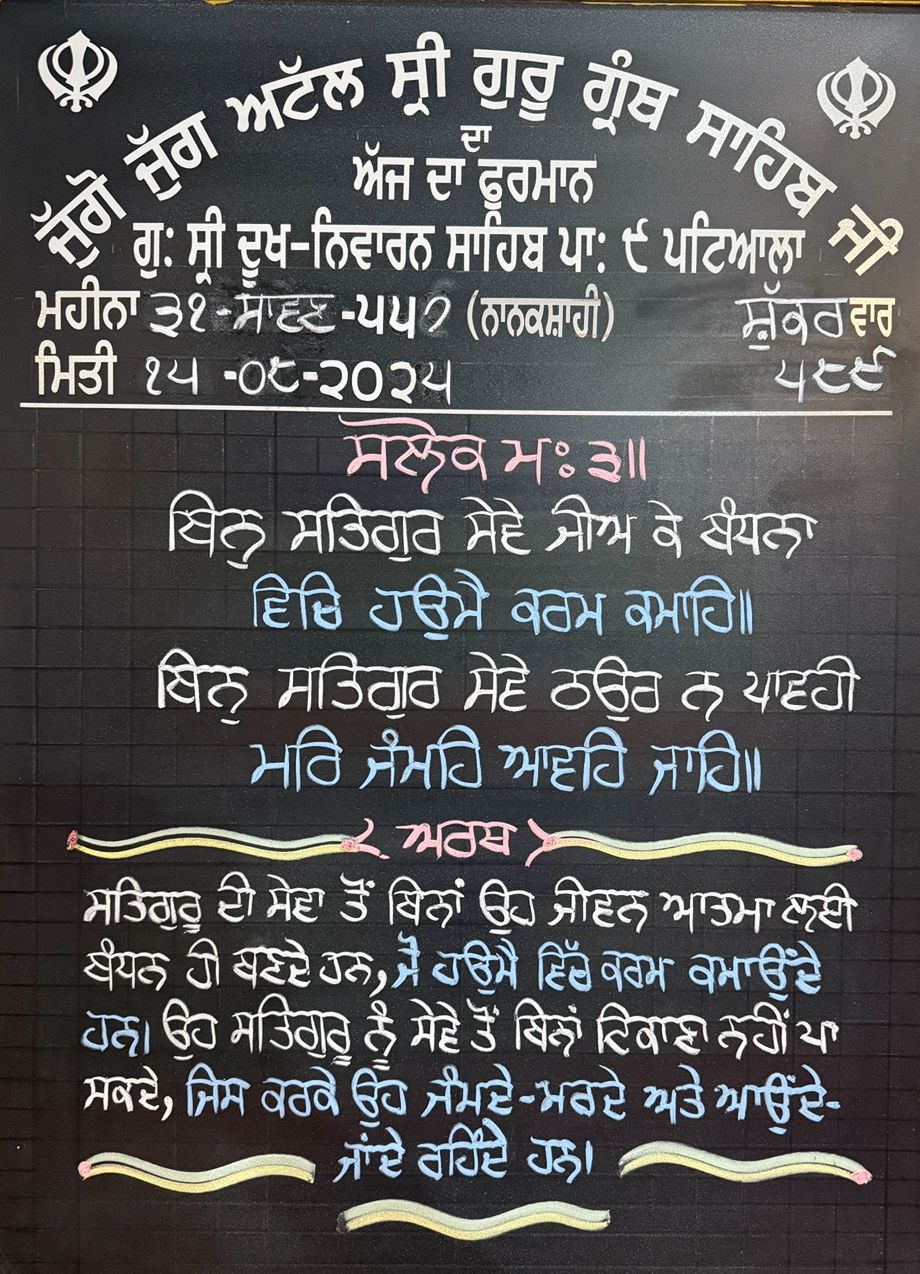 ਜੁੱਗੋ ਜੁੱਗ ਅਟੱਲ ਸ੍ਰੀ ਗੁਰੂ ਗ੍ਰੰਥ ਸਾਹਿਬ ਜੀ
ਦਾ
ਅੱਜ ਦਾ ਫੁਰਮਾਨ
ਗੁ: ਸ੍ਰੀ ਦੂਖ-ਨਿਵਾਰਨ ਸਾਹਿਬ ਪਾ: ੯ ਪਟਿਆਲਾ
ਮਹੀਨਾ ੩੧-ਸਾਵਣ-੫੫੭ (ਨਾਨਕਸ਼ਾਹੀ) ਸ਼ੁੱਕਰਵਾਰ
ਮਿਤੀ ੧੫ -੦੮-੨੦੨੫
ਸਲੋਕ ਮਃ ੩॥
ਬਿਨੁ ਸਤਿਗੁਰ ਸੇਵੇ ਜੀਅ ਕੇ ਬੰਧਨਾ
ਵਿਚਿ ਹਉਮੈ ਕਰਮ ਕਮਾਹਿ॥
ਬਿਨੁ ਸਤਿਗੁਰ ਸੇਵੇ ਠਉਰ ਨ ਪਾਵਹੀ
ਮਰਿ ਜੰਮਹਿ ਆਵਹਿ ਜਾਹਿ॥
ਅਰਥ
ਸਤਿਗੁਰੂ ਦੀ ਸੇਵਾ ਤੋਂ ਬਿਨਾਂ ਉਹ ਜੀਵਨ ਆਤਮਾ ਲਈ
ਬੰਧਨ ਹੀ ਬਣਦੇ ਹਨ, ਜੋ ਹਉਮੈ ਵਿੱਚ ਕਰਮ ਕਮਾਉਂਦੇ
ਹਨ। ਉਹ ਸਤਿਗੁਰੂ ਨੂੰ ਸੇਵੇ ਤੋਂ ਬਿਨਾਂ ਟਿਕਾਣਾ ਨਹੀਂ ਪਾ
ਸਕਦੇ, ਜਿਸ ਕਰਕੇ ਉਹ ਜੰਮਦੇ-ਮਰਦੇ ਅਤੇ ਆਉਂਦੇ-
ਜਾਂਦੇ ਰਹਿੰਦੇ ਹਨ।